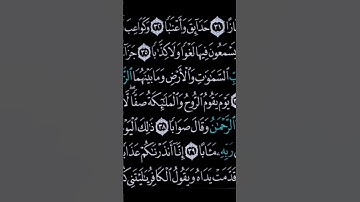 ازًا ٣١ حَدَآئِقَ وَأَعْنَٰبًا ٣٢ وَكَوَاعِبَ
يَسْمَعُونَ فِيهَا لَغْوًا وَلَا كِذَّٰبًا ٣٥ جَزَآ
ٱلسَّمَٰوَٰتِ وَٱلْأَرْضِ وَمَا بَيْنَهُمَا ٱلرَّ
يَوْمَ يَقُومُ ٱلرُّوحُ وَٱلْمَلَٰٓئِكَةُ صَفًّا ۖ لَّا
ٱلرَّحْمَٰنُ وَقَالَ صَوَابًا ٣٨ ذَٰلِكَ ٱلْيَوْ
رَبِّهِۦ مَـَٔابًا ٣٩ إِنَّآ أَنذَرْنَٰكُمْ عَذَابًا
قَدَّمَتْ يَدَاهُ وَيَقُولُ ٱلْكَافِرُ يَٰلَيْتَنِى كُ